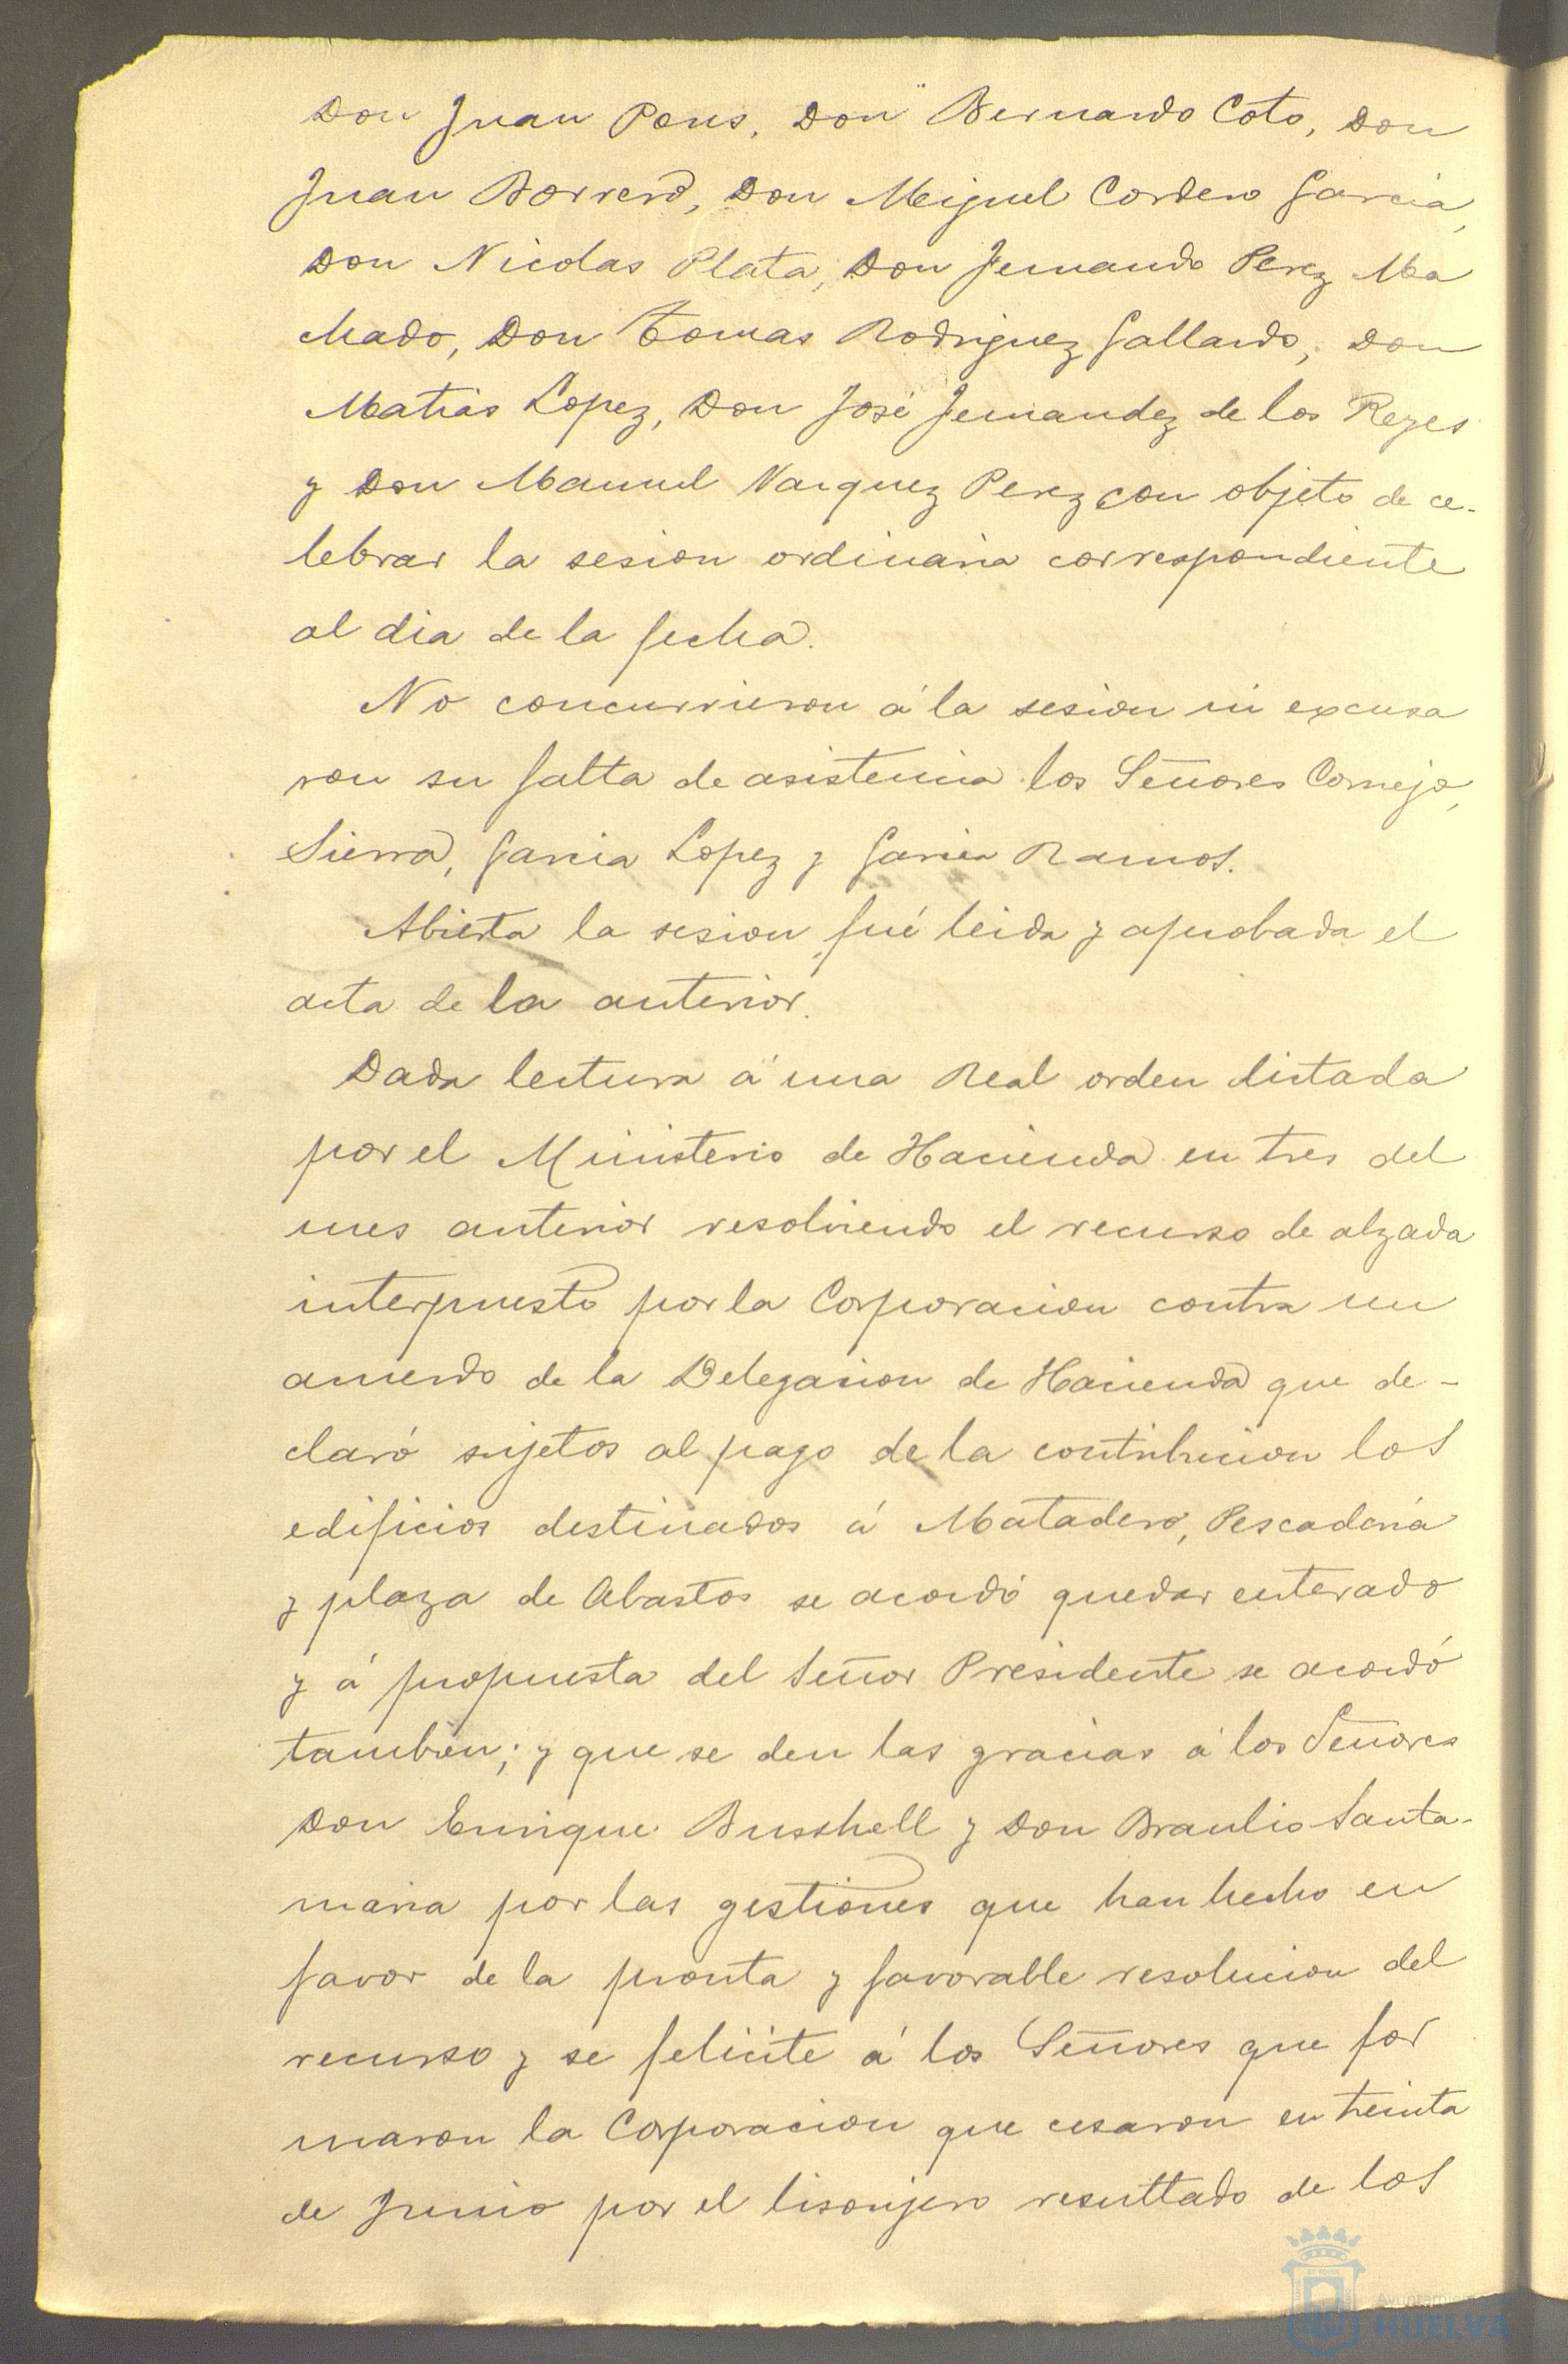 Don Juan Pons, Don Bernardo Coto, Don
Juan Borrero, Don Miguel Cordero Garcia,
Don Nicolas Plata, Don Fernando Perez Ma
chado, Don Tomas Rodriguez Gallardo, Don
Matias Lopez, Don José Fernandez de los Reyes
y Don Manuel Vazquez Perez con objeto de ce-
lebrar la sesion ordinaria correspondiente
al dia de la fecha.
No concurrieron á la sesion ni excusa
ron su falta de asistencia los Señores Cornejo,
Sierra, Garcia Lopez y Garcia Ramos.
Abierta la sesion fué leida y aprobada el
acta de la anterior.
Dada lectura á una Real orden dictada
por el Ministerio de Hacienda en tres del
mes anterior resolviendo el recurso de alzada
interpuesto por la Corporacion contra un
acuerdo de la Delegacion de Hacienda que de-
claró sujetos al pago de la contribucion los
edificios destinados á Matadero, Pescaderia
y plaza de Abastos se acordó quedar enterado
y á propuesta del Señor Presidente se acordó
tambien; y que se den las gracias á los Señores
Don Enrique Busshell y Don Braulio Santa-
maria por las gestiones que han hecho en
favor de la pronta y favorable resolucion del
recurso y se felicite á los Señores que for
maron la Corporacion que cesaron en treinta
de Junio por el lisonjero resultado de los
Ayuntamiento
HUELVA